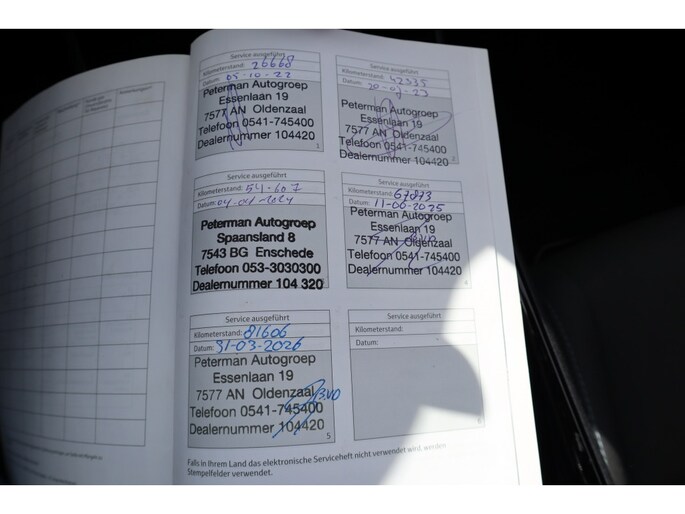 Service ausgeführt
Kilometerstand: 26668
Datum: 05-10-22
Peterman Autogroep
Essenlaan 19
7577 AN Oldenzaal
Telefoon 0541-745400
Dealernummer 104420
1
Service ausgeführt
Kilometerstand: 42335
Datum: 20-07-23
Peterman Autogroep
Essenlaan 19
7577 AN Oldenzaal
Telefoon 0541-745400
Dealernummer 104420
2
Service ausgeführt
Kilometerstand: 54-607
Datum:
Peterman Autogroep
Spaansland 8
7543 BG Enschede
Telefoon 053-3030300
Dealernummer 104 320
Service ausgeführt
Kilometerstand: 67873
Datum: 11-06-2025
Peterman Autogroep
Essenlaan 19
7577 AN Oldenzaal
Telefoon 0541-745400
Dealernummer 104420
4
Service ausgeführt
Kilometerstand: 81606
Datum: 31-03-2026
Peterman Autogroep
Essenlaan 19
7577 AN Oldenzaal
Telefoon 0541-745400
Dealernummer 104420
5
Service ausgeführt
Kilometerstand:
Datum:
6
Falls in Ihrem Land das elektronische Serviceheft nicht verwendet wird, werden
Stempelfelder verwendet.